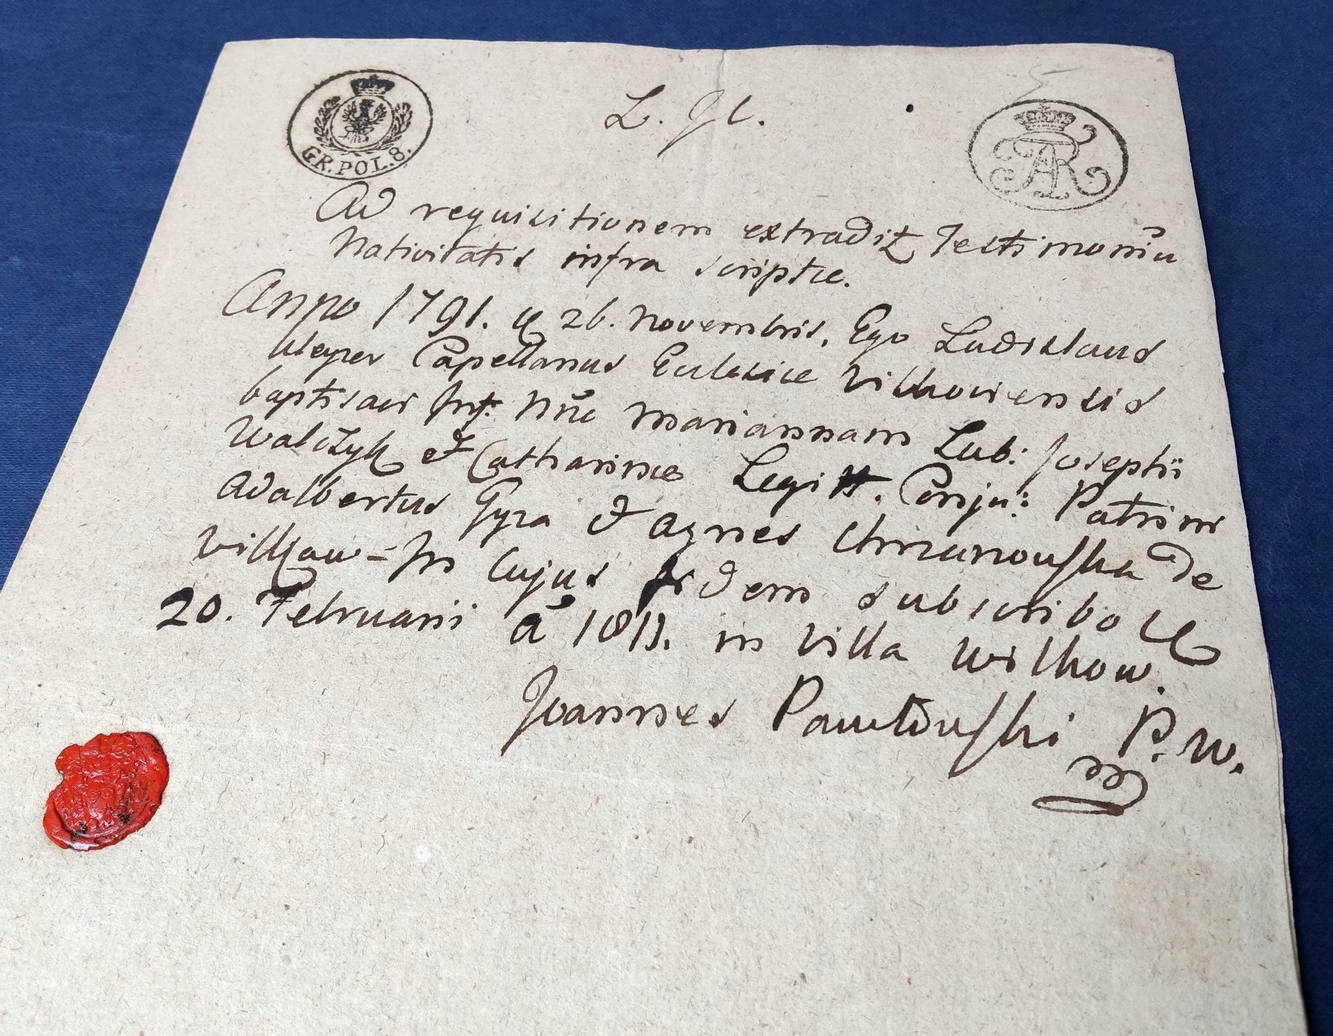 GR. POL. 8.
L.
AR
Ad requisitionem extradit Testimoniu
Nativitatis infra scriptæ.
Anno 1791. 26. Novembris, Ego Ladislaus
Meyzer Capellanus Eclesiæ Vilkoviensis
baptisavi Inf. Nñe Mariannam Lab: Josephi
Walczyk et Catharinæ Legitt. Conju: Patrini
Adalbertus Gyza et Agnes Chrzanowska de
Vilkow - In Cujus fidem subscribo
20. Februarii ā 1811. in Villa Wilkow.
Joannes Pawłowski P. W.